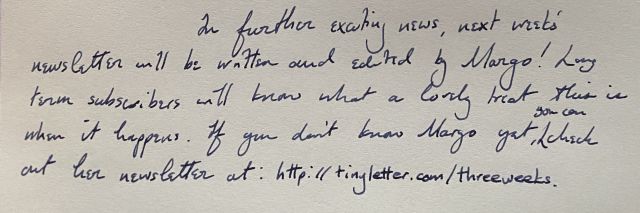 In further exciting news, next week's
newsletter will be written and edited by Margo! Long
term subscribers will know what a lovely treat this is
when it happens. If you don't know Margo yet, you can check
out her newsletter at: http://tinyletter.com/threeweeks.